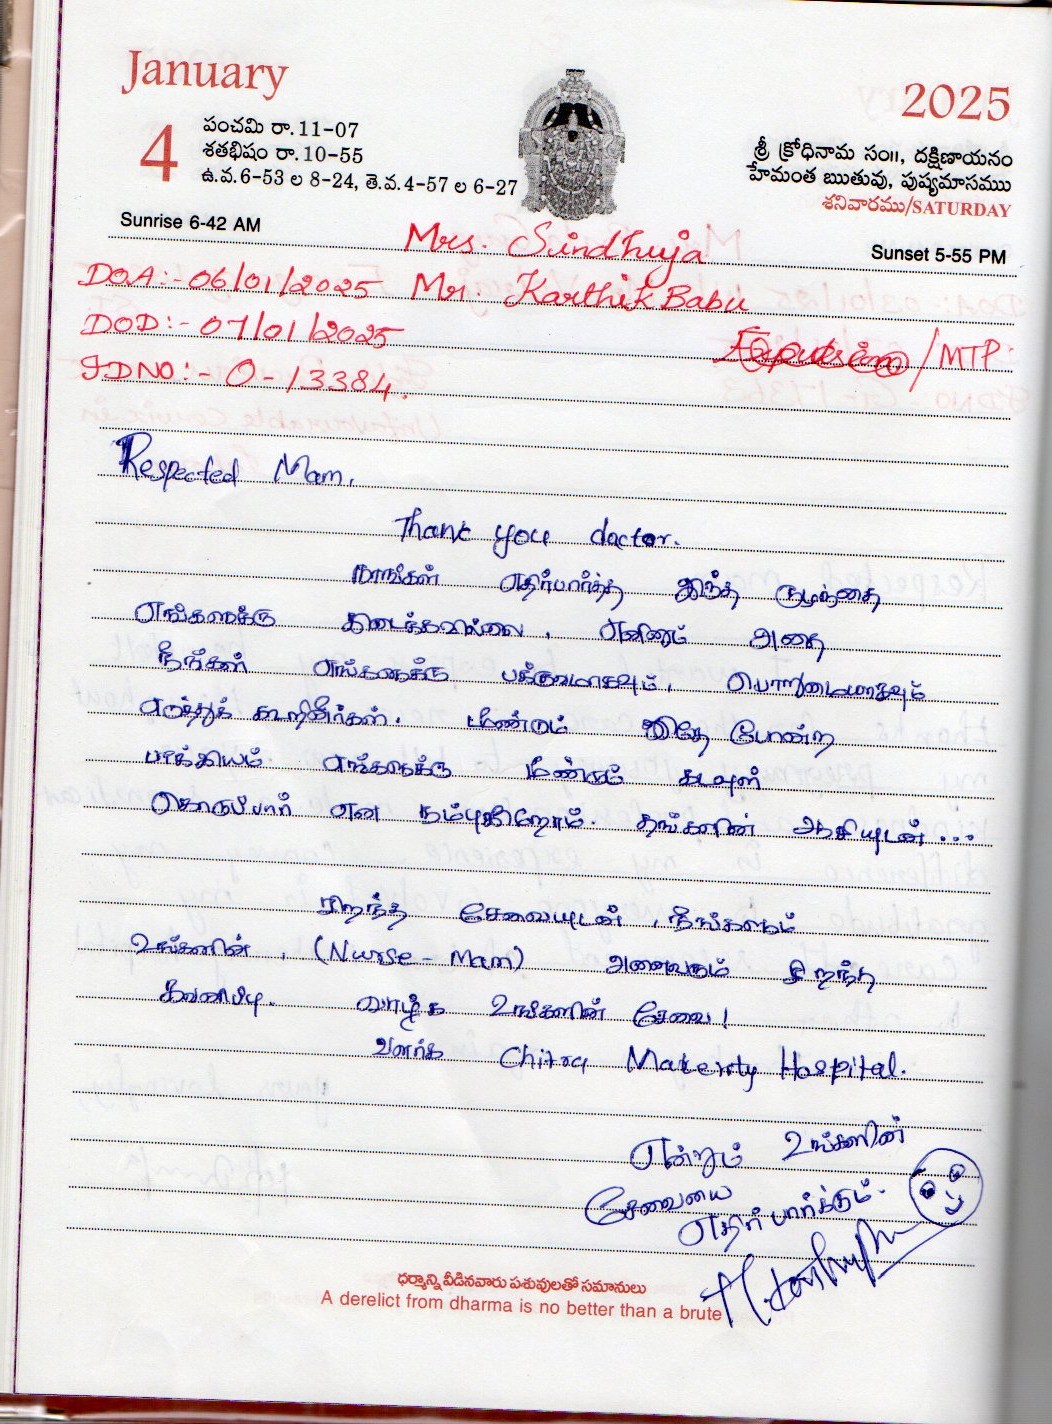 January
2025
4
పంచమి రా. 11-07
శతభిషం రా. 10-55
ఉ.వ. 6-53 ల 8-24, తె.వ. 4-57 ల 6-27
శ్రీ క్రోధినామ సం॥, దక్షిణాయనం
హేమంత ఋతువు, పుష్యమాసము
శనివారము/SATURDAY
Sunrise 6-42 AM
Sunset 5-55 PM
Mrs. Sindhuja
DOA:- 06/01/2025 Mr. Karthik Babu
DOD:- 07/01/2025
/MTP.
IDNO:- O-13384.
Respected Mam,
Thank you doctor.
நாங்கள் எதிர்பார்த்த இந்த குழந்தை
எங்களுக்கு கிடைக்கவில்லை, எனினும் அதை
நீங்கள் எங்களுக்கு பக்குவமாகவும், பொறுமையாகவும்
எடுத்துக் கூறினீர்கள். மீண்டும் இதே போன்ற
பாக்கியம் எங்களுக்கு மீண்டும் கடவுள்
கொடுப்பார் என நம்புகிறோம். தங்களின் ஆசியுடன் ...
சிறந்த சேவையுடன், நீங்களும்
உங்களின், (Nurse - Mam) அனைவரும் சிறந்த
கவனிப்பு. வாழ்க உங்களின் சேவை!
வளர்க Chitra Maternity Hospital.
என்றும் உங்களின்
சேவையை
எதிர் பார்க்கும்.
ధర్మాన్ని వీడినవారు పశువులతో సమానులు
A derelict from dharma is no better than a brute